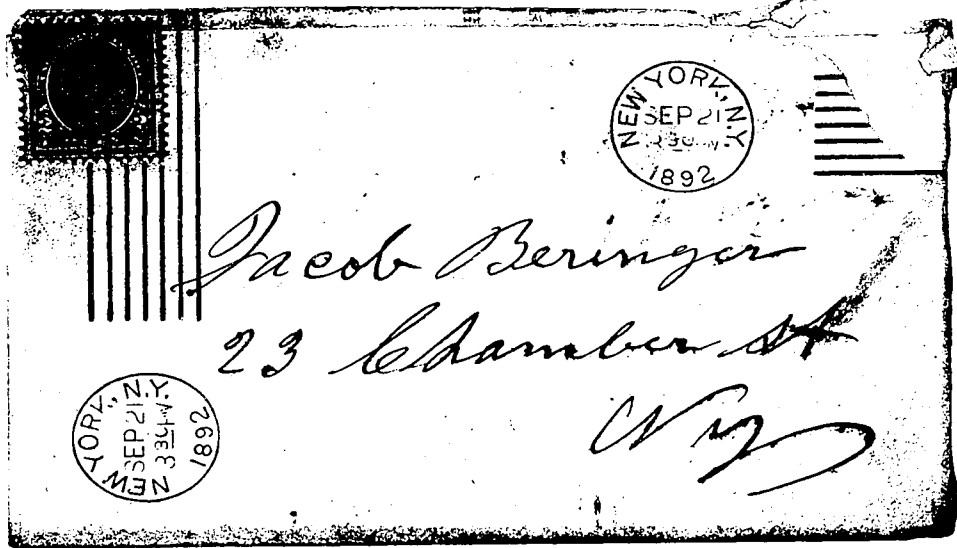 NEW YORK, N.Y.
SEP 21
3 30 PM
1892
Jacob Beringer
23 Chamber st
NY
NEW YORK, N.Y.
SEP 21
3 30 PM
1892